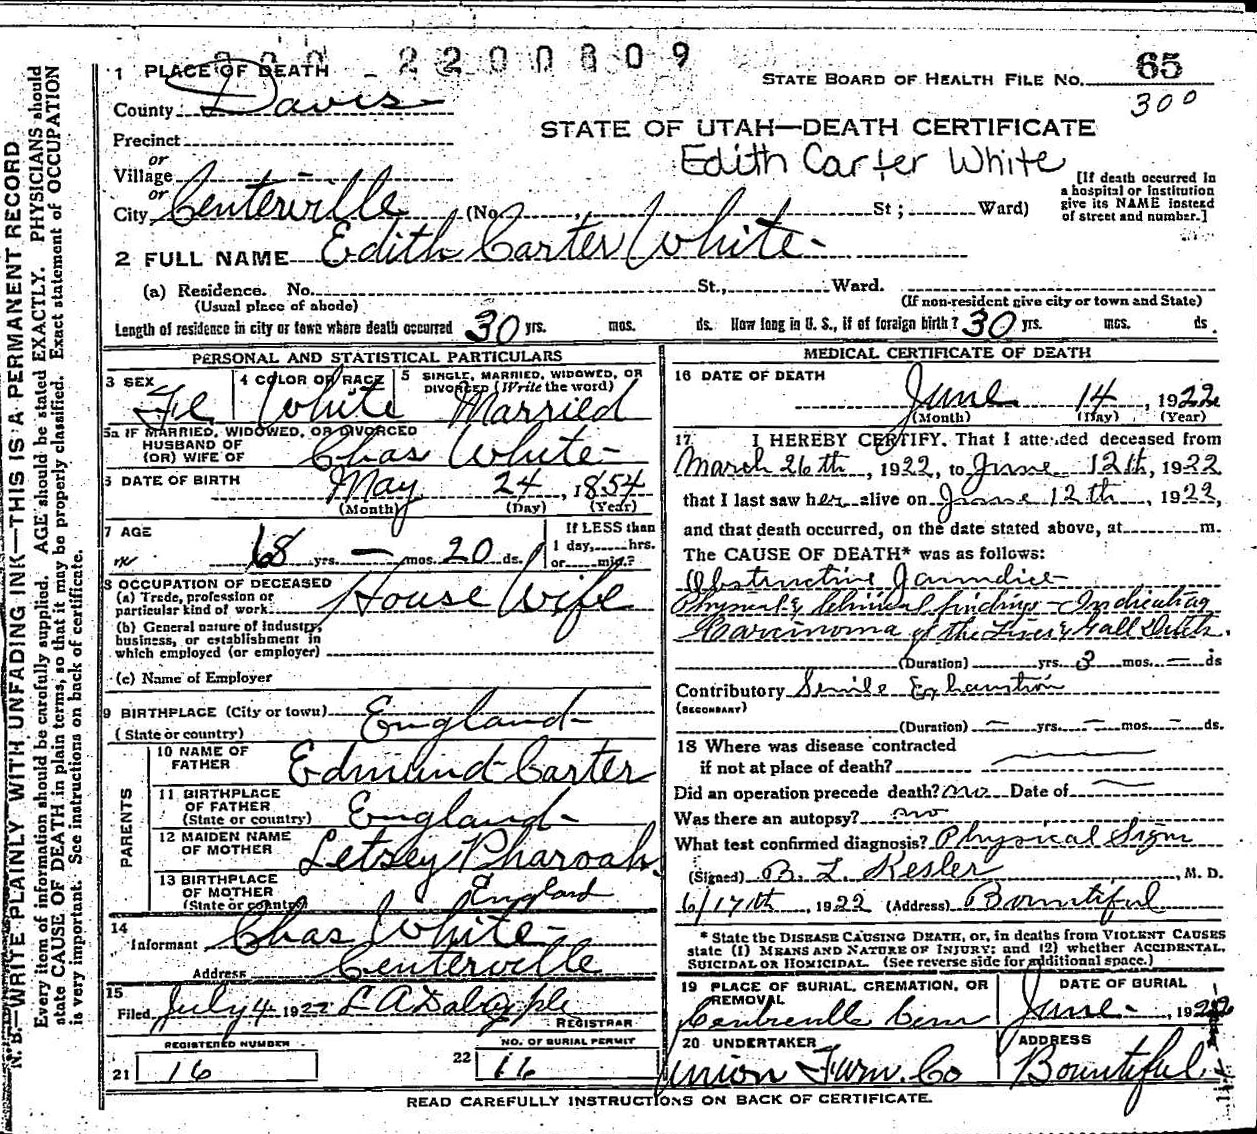 2200809
1 PLACE OF DEATH
STATE BOARD OF HEALTH FILE NO. 65
County Davis
300
STATE OF UTAH—DEATH CERTIFICATE
Precinct
Edith Carter White
or
Village
or
City Centerville (No. , St; Ward)
[If death occurred in
a hospital or institution
give its NAME instead
of street and number.]
2 FULL NAME Edith Carter White
(a) Residence. No. St., Ward.
(Usual place of abode)
(If non-resident give city or town and State)
Length of residence in city or town where death occurred 30 yrs. mos. ds. How long in U. S., if of foreign birth? 30 yrs. mos. ds
PERSONAL AND STATISTICAL PARTICULARS
3 SEX Fe
4 COLOR OR RACE White
5 SINGLE, MARRIED, WIDOWED, OR
DIVORCED (Write the word)
Married
5a IF MARRIED, WIDOWED, OR DIVORCED
HUSBAND OF
(OR) WIFE OF Chas White
6 DATE OF BIRTH May 24, 1854
(Month) (Day) (Year)
7 AGE 68 yrs. — mos. 20 ds.
If LESS than
1 day, hrs.
or min.?
8 OCCUPATION OF DECEASED
(a) Trade, profession or
particular kind of work House Wife
(b) General nature of industry,
business, or establishment in
which employed (or employer)
(c) Name of Employer
9 BIRTHPLACE (City or town)
(State or country) England
PARENTS
10 NAME OF
FATHER Edmund Carter
11 BIRTHPLACE
OF FATHER
(State or country) England
12 MAIDEN NAME
OF MOTHER Letsey Pharoah
13 BIRTHPLACE
OF MOTHER
(State or country) England
14
Informant Chas White
Address Centerville
15
Filed July 4 1922 L A Dalrymple
REGISTRAR
REGISTERED NUMBER
21 16
NO. OF BURIAL PERMIT
22 16
MEDICAL CERTIFICATE OF DEATH
16 DATE OF DEATH
June 14, 1922
(Month) (Day) (Year)
17 I HEREBY CERTIFY, That I attended deceased from
March 26th, 1922, to June 12th, 1922
that I last saw her alive on June 12th, 1922,
and that death occurred, on the date stated above, at m.
The CAUSE OF DEATH* was as follows:
Obstructive Jaundice
Physical & clinical findings Indicating
Carcinoma of the Liver & Gall Ducts.
(Duration) yrs. 3 mos. — ds
Contributory Senile Exhaustion
(SECONDARY)
(Duration) — yrs. — mos. — ds.
18 Where was disease contracted
if not at place of death?
Did an operation precede death? no Date of
Was there an autopsy? no
What test confirmed diagnosis? Physical Sign
(Signed) B. L. Kesler, M. D.
6/17th, 1922 (Address) Bountiful
* State the DISEASE CAUSING DEATH, or, in deaths from VIOLENT CAUSES
state (1) MEANS AND NATURE OF INJURY; and (2) whether ACCIDENTAL,
SUICIDAL OR HOMICIDAL. (See reverse side for additional space.)
19 PLACE OF BURIAL, CREMATION, OR
REMOVAL
Centreville Cem
DATE OF BURIAL
June, 1922
20 UNDERTAKER
Union Furn. Co
ADDRESS
Bountiful
READ CAREFULLY INSTRUCTIONS ON BACK OF CERTIFICATE.
N. B.—WRITE PLAINLY WITH UNFADING INK—THIS IS A PERMANENT RECORD
Every item of information should be carefully supplied. AGE should be stated EXACTLY. PHYSICIANS should
state CAUSE OF DEATH in plain terms, so that it may be properly classified. Exact statement of OCCUPATION
is very important. See instructions on back of certificate.